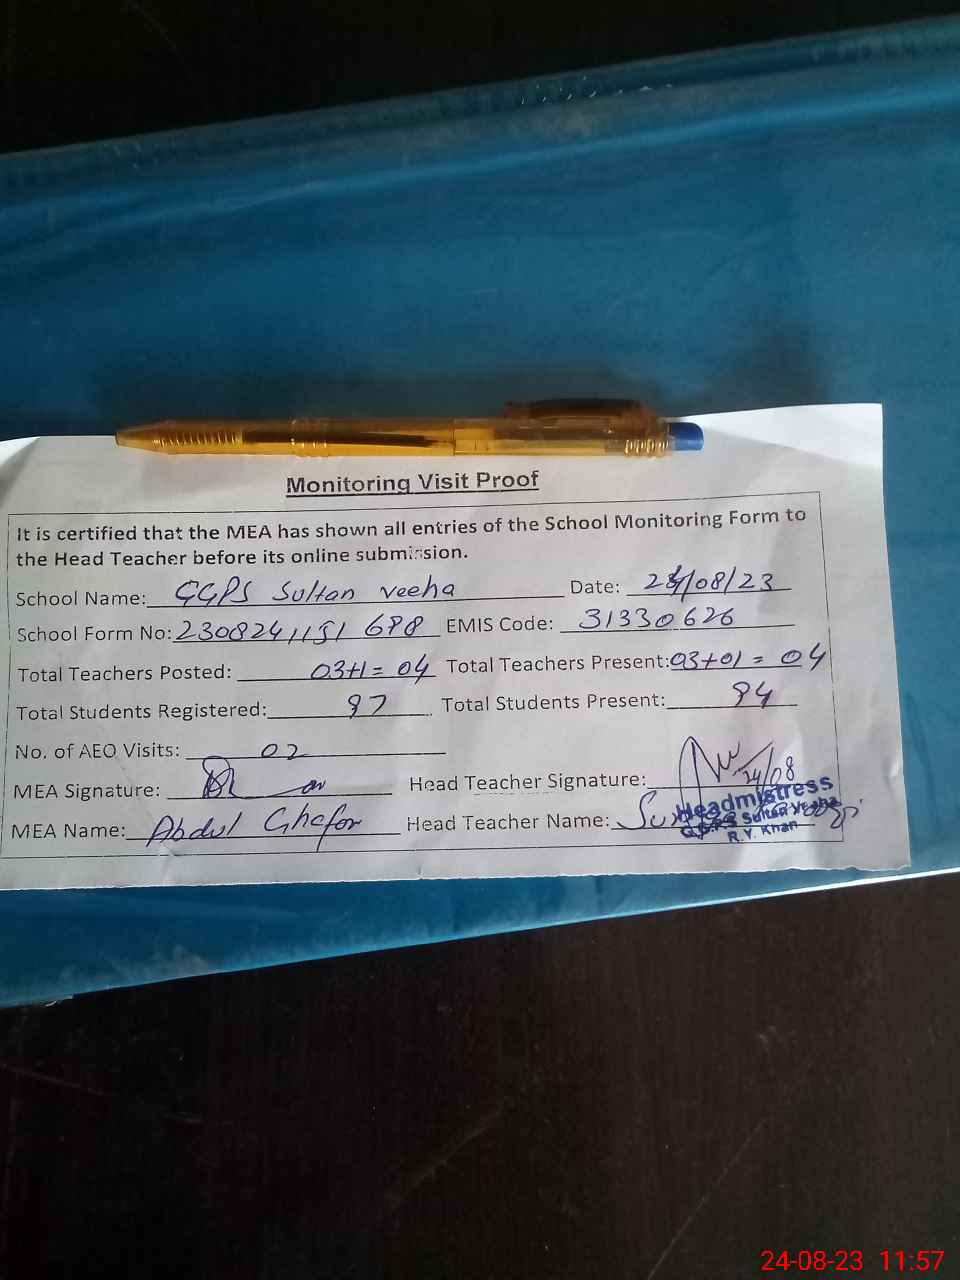 Monitoring Visit Proof
It is certified that the MEA has shown all entries of the School Monitoring Form to
the Head Teacher before its online submission.
School Name: GGPS Sultan veeha Date: 24/08/23
School Form No: EMIS Code: 31330626
Total Teachers Posted: 03+1=04 Total Teachers Present: 03+01=04
Total Students Registered: 97 Total Students Present: 94
No. of AEO Visits: 02
MEA Signature: Head Teacher Signature: 24/08
MEA Name: Abdul Ghafor Head Teacher Name:
Headmistress
G.G.P.S Sultan Veeha
R.Y. Khan
24-08-23 11:57